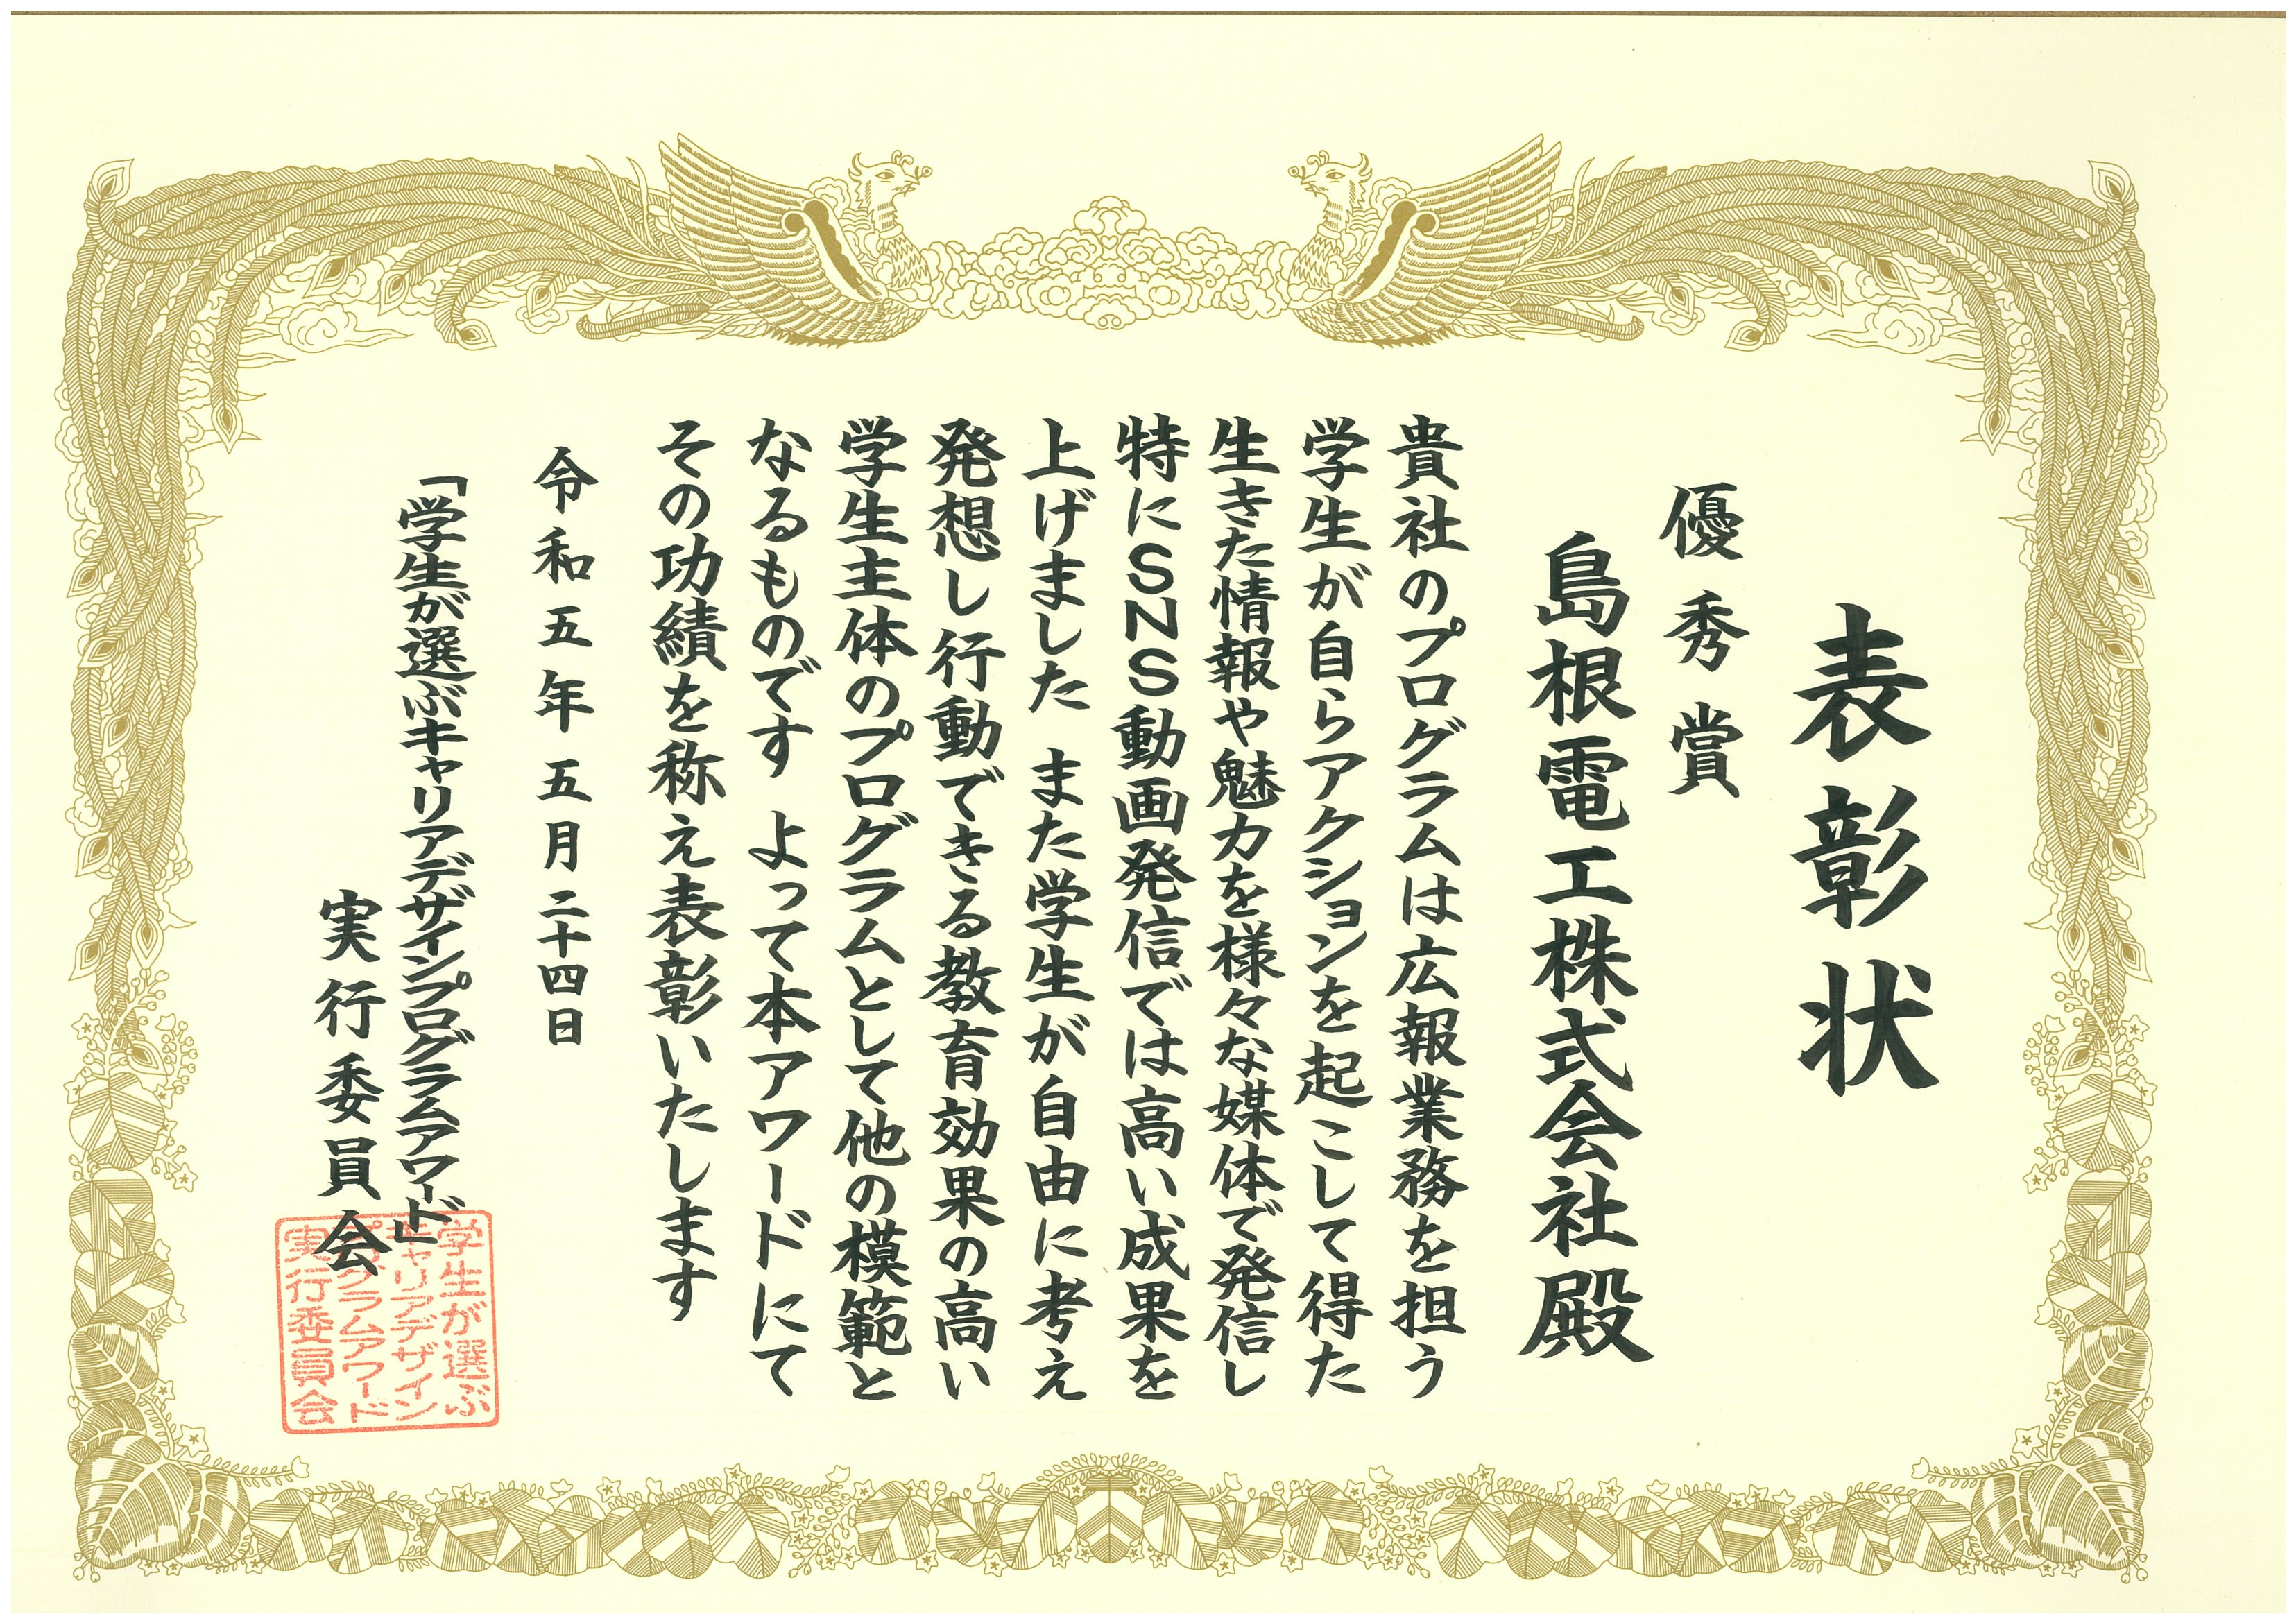 表彰状
優秀賞
島根電工株式会社殿
貴社のプログラムは広報業務を担う
学生が自らアクションを起こして得た
生きた情報や魅力を様々な媒体で発信し
特にSNS動画発信では高い成果を
上げました また学生が自由に考え
発想し行動できる教育効果の高い
学生主体のプログラムとして他の模範と
なるものです よって本アワードにて
その功績を称え表彰いたします
令和五年五月二十四日
「学生が選ぶキャリアデザインプログラムアワード」
実行委員会
学生が選ぶ
キャリアデザイン
プログラムアワード
実行委員会